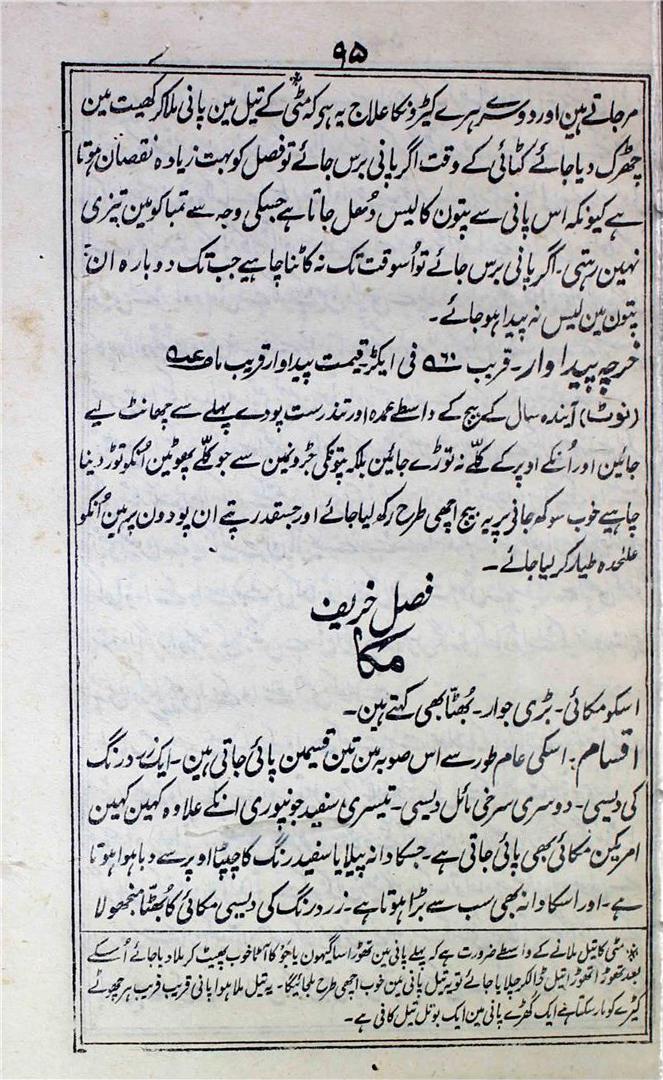 ۹۵
مرجاتے ہین اور دوسرے ہرے کیڑونکا علاج یہ ہی کہ مٹی٭ کے تیل مین پانی ملاکر کھیت مین
چھڑک دیا جائے کٹائی کے وقت اگر پانی برس جائے تو فصل کو بہت زیادہ نقصان ہوتا
ہے کیونکہ اس پانی سے پتون کا لیس دُھل جاتا ہے جسکی وجہ سے تمباکو مین تیزی
نہین رہتی۔ اگر پانی برس جائے تو اُسوقت تک نہ کاٹنا چاہیے جب تک دوبارہ ان
پتون مین لیس نہ پیدا ہو جائے۔
خرچہ پیداوار۔ قریب فی ایکڑ قیمت پیداوار قریب
(نوٹ) آیندہ سال کے بیج کے واسطے عمدہ اور تندرست پودے پہلے سے چھانٹ لیے
جائین اور اُنکے اوپر کے کلّے نہ توڑے جائین بلکہ پتونکی جڑونمین سے جو کلّے پھوٹین اُنکو توڑ دینا
چاہیے خوب سوکھ جانی پر یہ بیج اچھی طرح رکھ لیا جائے اور جسقدر پتے ان پودون پر ہین اُنکو
علٰحدہ طیار کر لیا جائے۔
فصل خریف
مکا
اسکو مکائی۔ بڑی جوار۔ بُھٹّا بھی کہتے ہین۔
اقسام۔ اسکی عام طور سے اس صوبہ مین تین قسیمن پائی جاتی ہین۔ ایک زرد رنگ
کی دیسی۔ دوسری سرخی مائل دیسی۔ تیسری سفید جونپوری انکے علاوہ کہین کہین
امریکن مکائی بھی پائی جاتی ہے۔ جسکا دانہ پیلا یا سفید رنگ کا چپٹا اوپر سے دبا ہوا ہوتا
ہے۔ اور اسکا دانہ بھی سب سے بڑا ہوتا ہے۔ زرد رنگ کی دیسی مکائی کا بُھٹا منجھولا
٭ مٹی کا تیل ملانے کے واسطے ضرورت ہے کہ پہلے پانی مین تھوڑا سا گیہون یا جَو کا آٹا خوب پھینٹ کر ملا دیا جائے اُسکے
بعد تھوڑا تھوڑا تیل ڈالکر جلایا جائے تو یہ تیل پانی مین خوب اچھی طرح ملجائیگا۔ یہ تیل ملا ہوا پانی قریب قریب ہر چھوٹے
کیڑے کو مار سکتا ہے ایک گھڑے پانی مین ایک بوتل تیل کافی ہے۔